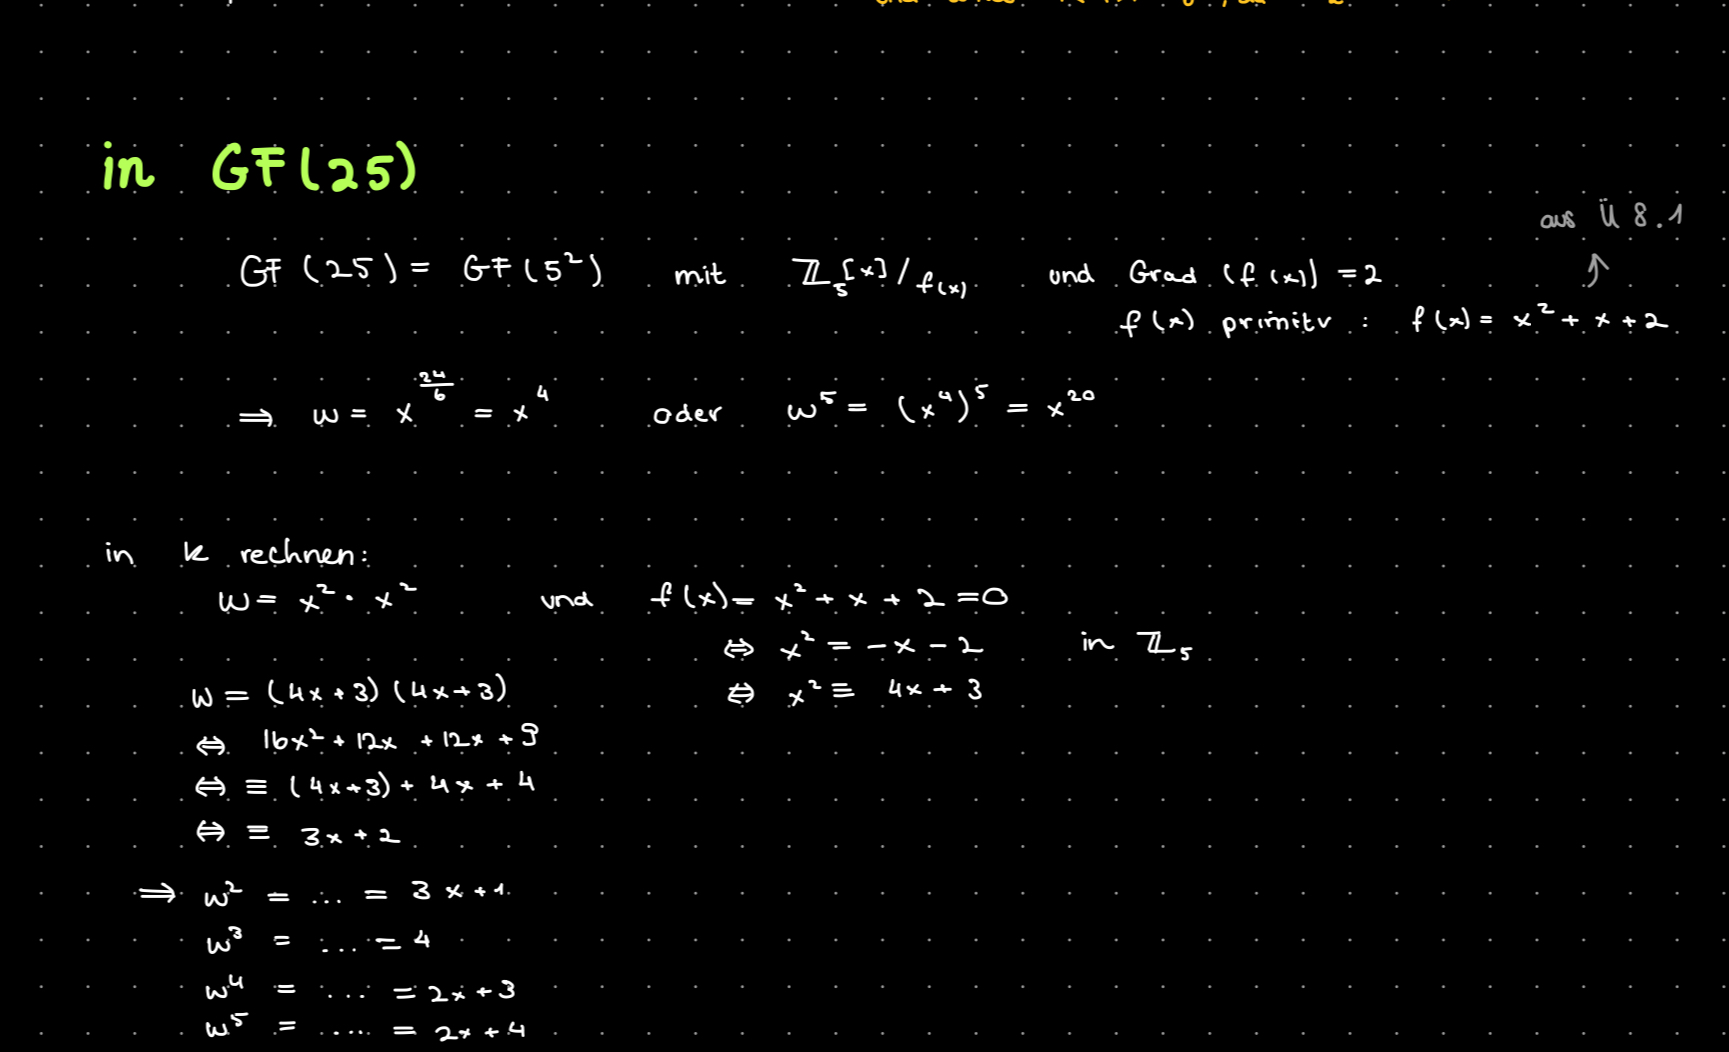 in GF(25)
aus Ü 8.1
GF(25) = GF(5²) mit ℤ₅[x]/f(x) und Grad(f(x)) = 2
f(x) primitv : f(x) = x² + x + 2
⇒ w = x^(24/6) = x⁴ oder w⁵ = (x⁴)⁵ = x²⁰
in k rechnen:
w = x² · x² und f(x) = x² + x + 2 = 0
⇔ x² = -x - 2 in ℤ₅
w = (4x+3)(4x+3) ⇔ x² ≡ 4x + 3
⇔ 16x² + 12x + 12x + 9
⇔ ≡ (4x+3) + 4x + 4
⇔ ≡ 3x + 2
⇒ w² = ... = 3x+1
w³ = ... = 4
w⁴ = ... = 2x+3
w⁵ = .... = 2x+4